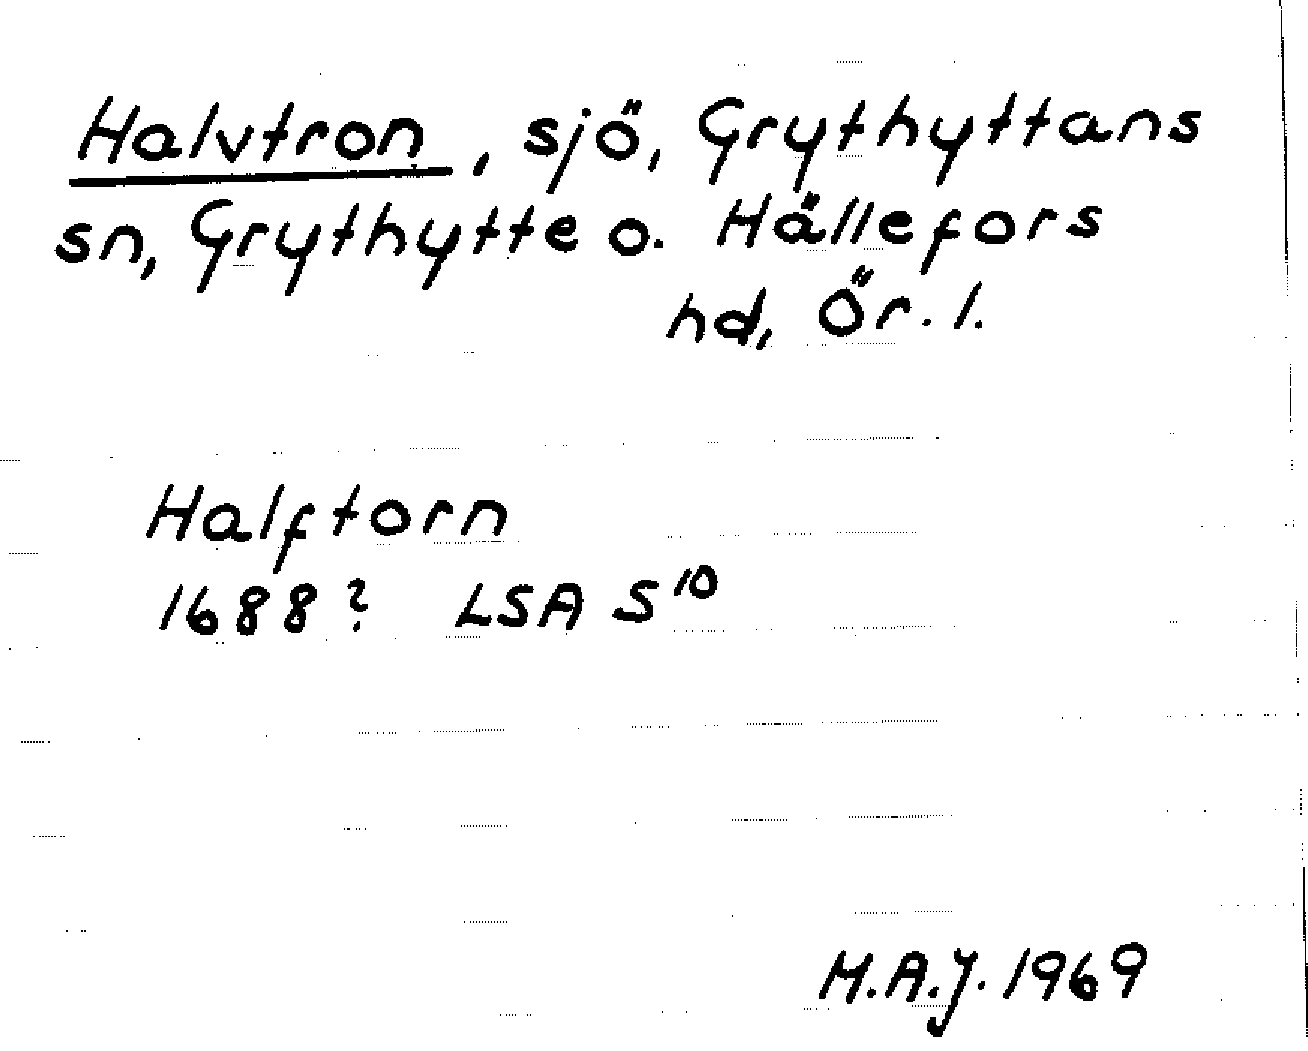 Halvtron, sjö, Grythyttans
sn, Grythytte o. Hällefors
hd, Ör. l.
Halftorn
1688? LSA S¹⁰
M.A.J. 1969